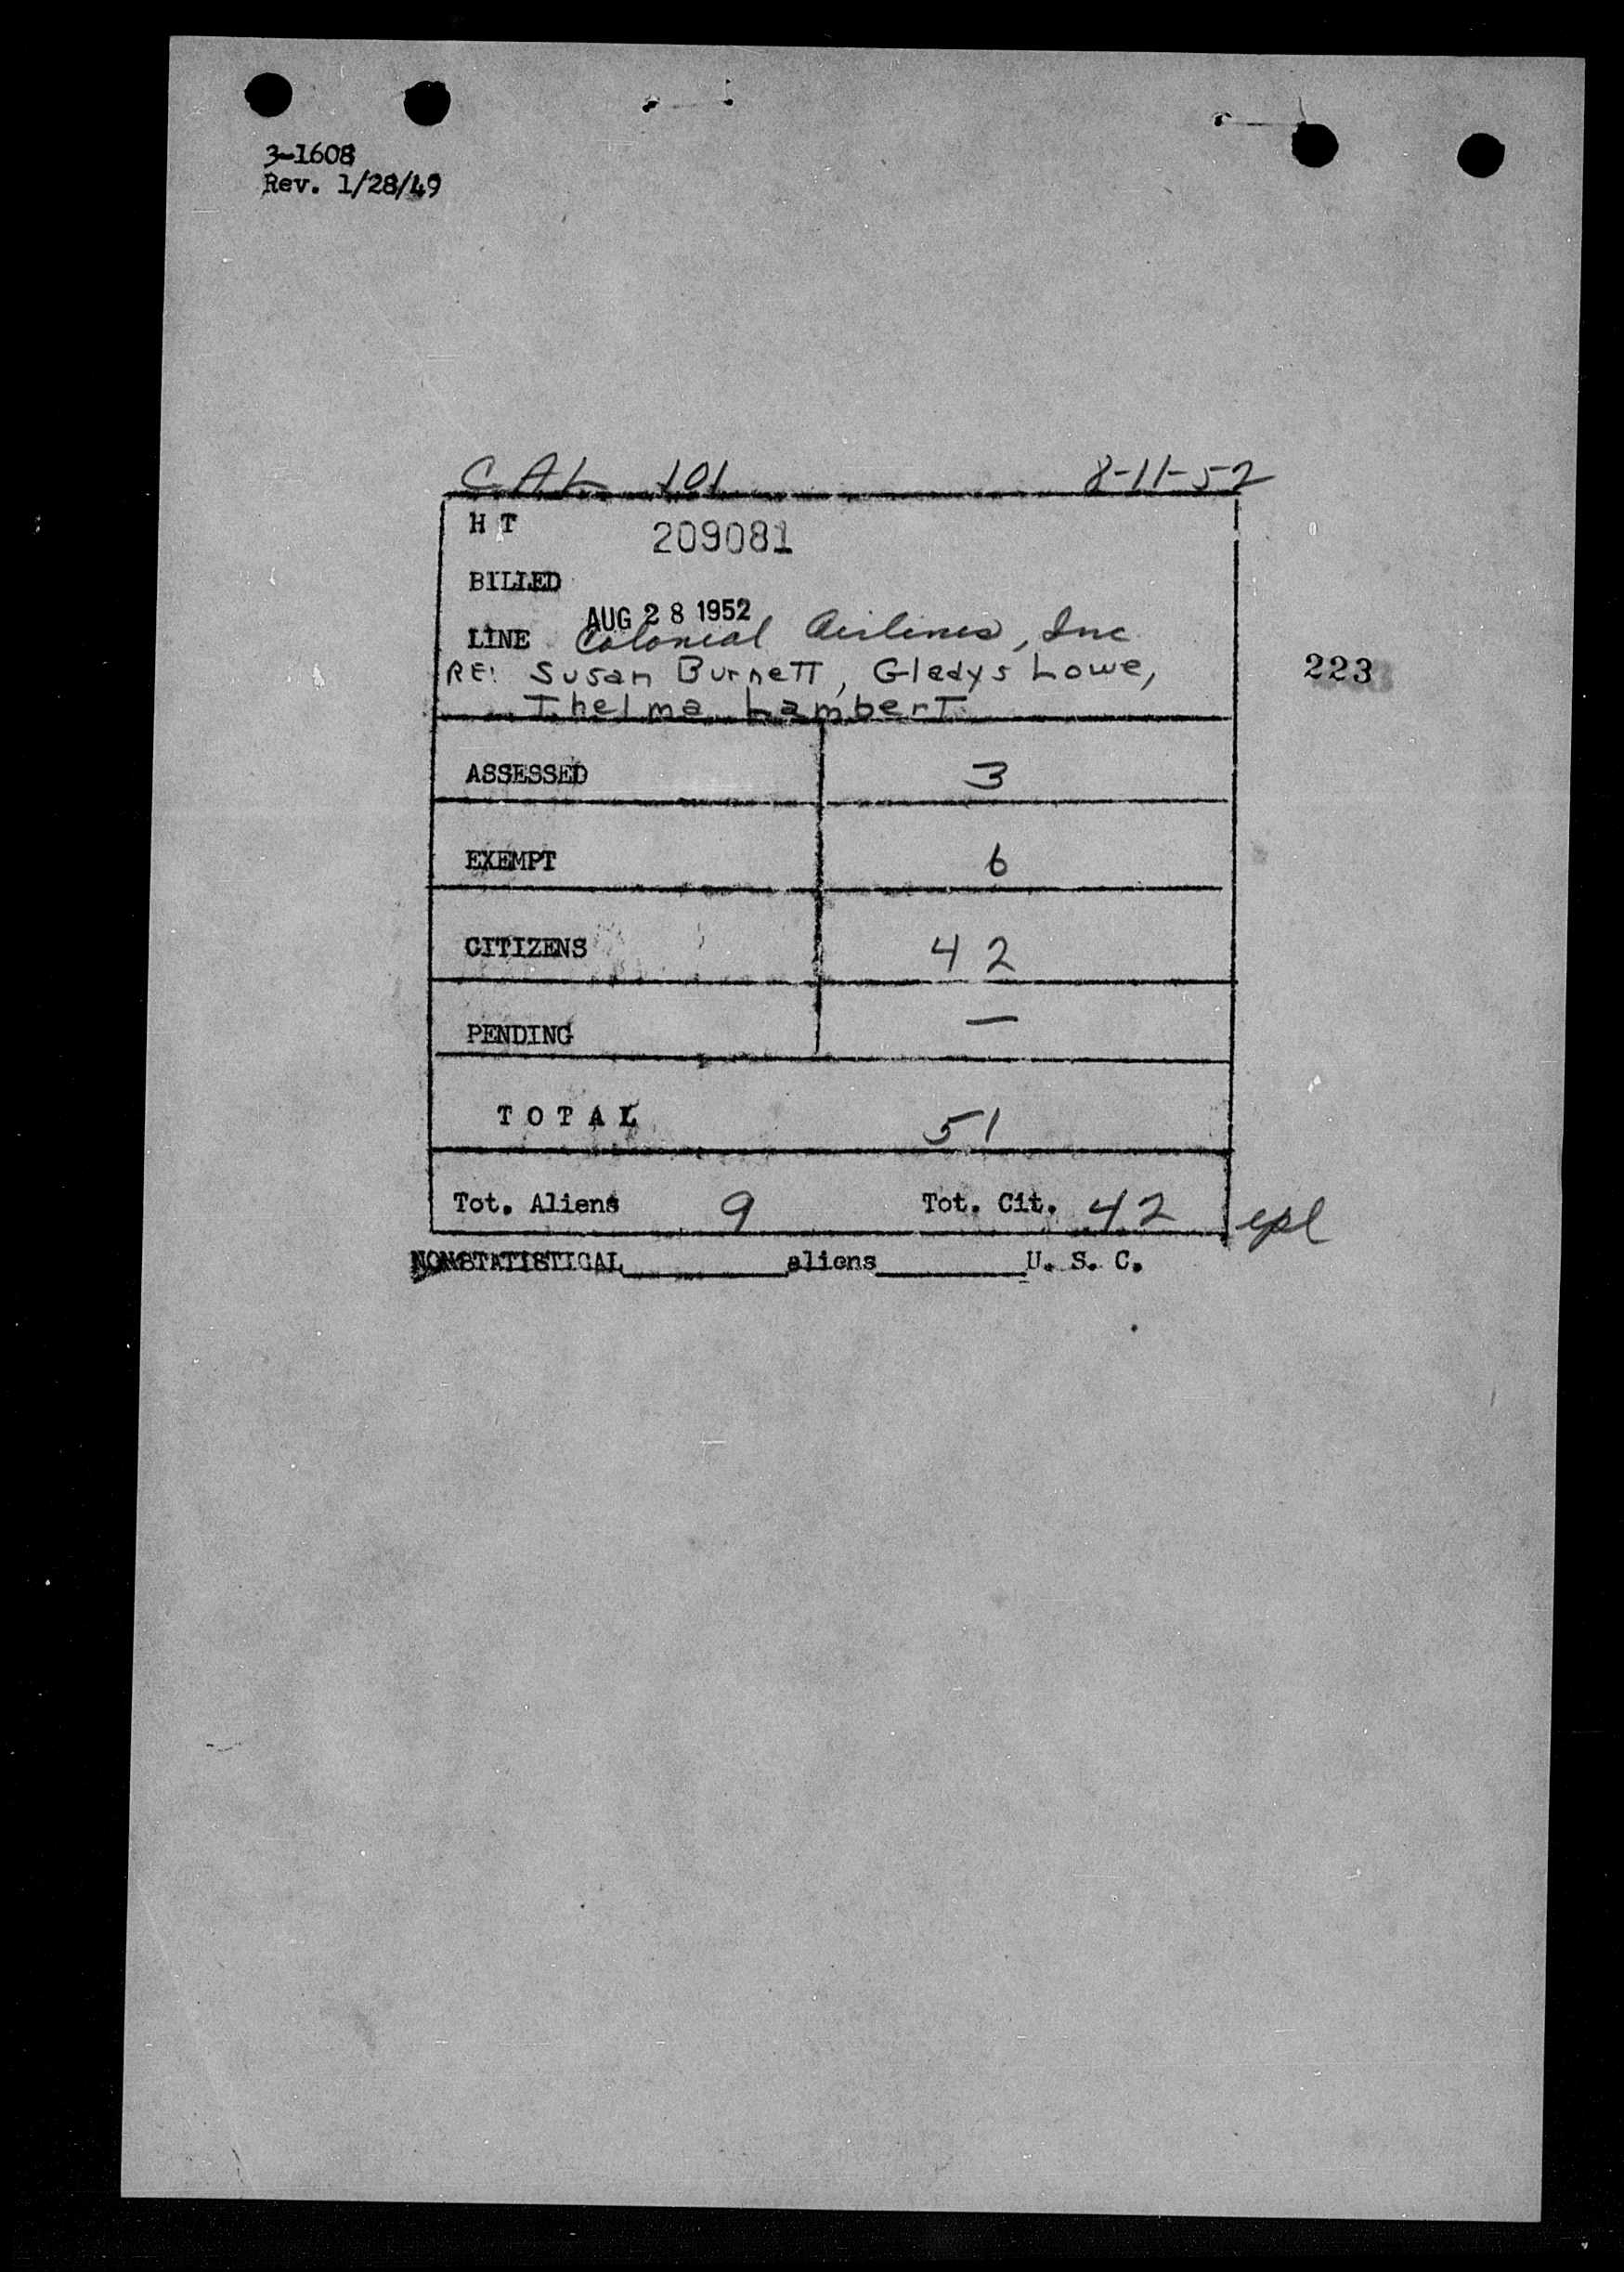 3-1608
Rev. 1/28/49
CAL 101 8-11-52
H T 209081
BILLED
AUG 28 1952
LINE Colonial Airlines, Inc
RE: Susan Burnett, Gladys Lowe,
Thelma Lambert
223
ASSESSED 3
EXEMPT 6
CITIZENS 42
PENDING —
TOTAL 51
Tot. Aliens 9 Tot. Cit. 42 epl
NONSTATISTICAL________aliens________U. S. C.